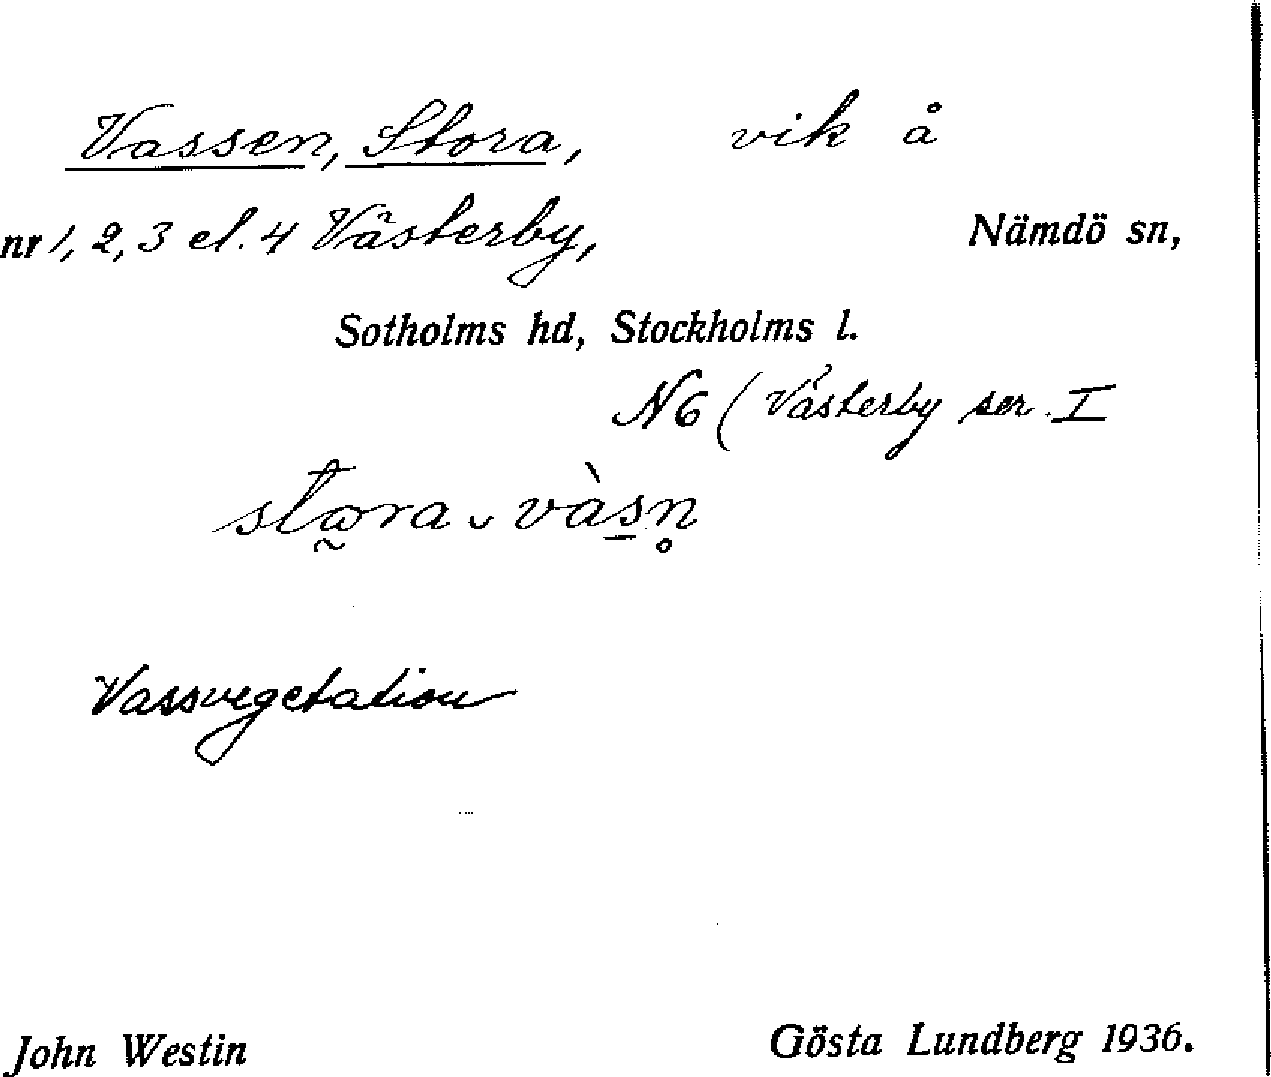 Vassen, Stora, vik å
nr 1, 2, 3 el. 4 Västerby, Nämdö sn,
Sotholms hd, Stockholms l.
N6 (Västerby ser. I
stω̰ra ᴗ vàs̲n̥
Vassvegetation
John Westin Gösta Lundberg 1936.